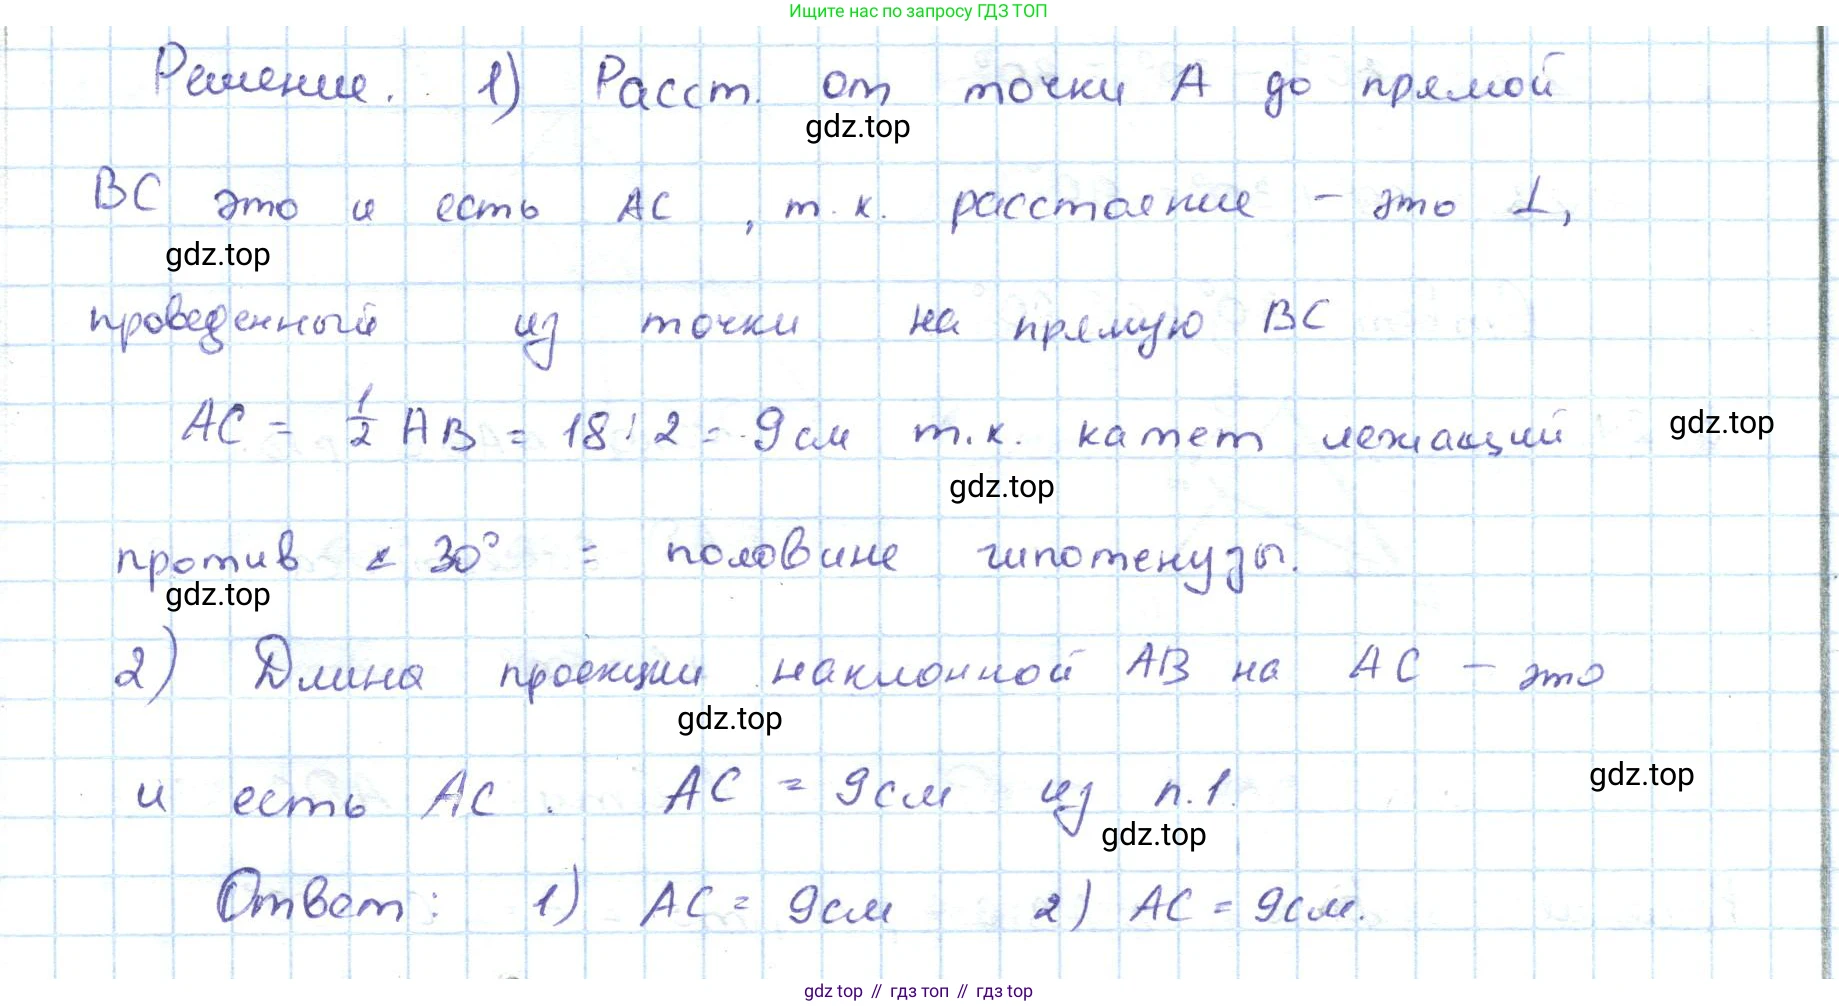 Ищите нас по запросу ГДЗ ТОП
Решение. 1) Расст. от точки А до прямой
gdz.top
ВС это и есть АС, т.к. расстояние – это ⊥,
gdz.top
проведенный из точки на прямую ВС
АС = 1/2 АВ = 18:2 = 9см т.к. катет лежащий
gdz.top
gdz.top
против ∠ 30° = половине гипотенузы.
gdz.top
2) Длина проекции наклонной АВ на АС – это
gdz.top
и есть АС. АС = 9см из п.1.
gdz.top
gdz.top
Ответ: 1) АС = 9см 2) АС = 9см.
gdz top // гдз топ // гдз top